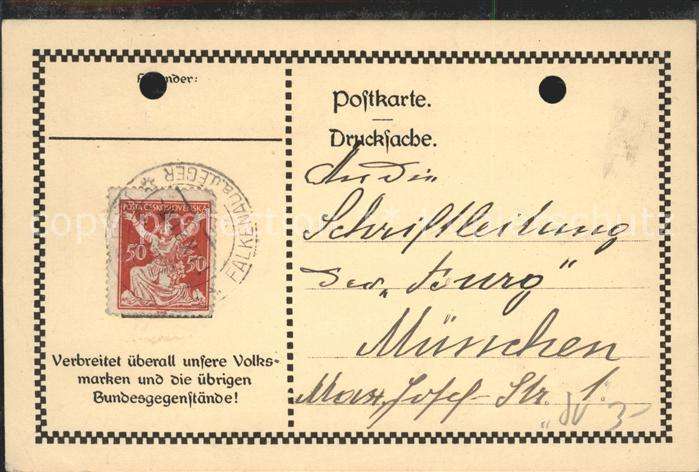 Postkarte.
Drucksache.
An die
Schriftleitung
der „Burg"
München
Max Josef-Str. 1.
POŠTA ČESKOSLOVENSKÁ
50 50
FALKENAU a.d. EGER
Verbreitet überall unsere Volks-
marken und die übrigen
Bundesgegenstände!